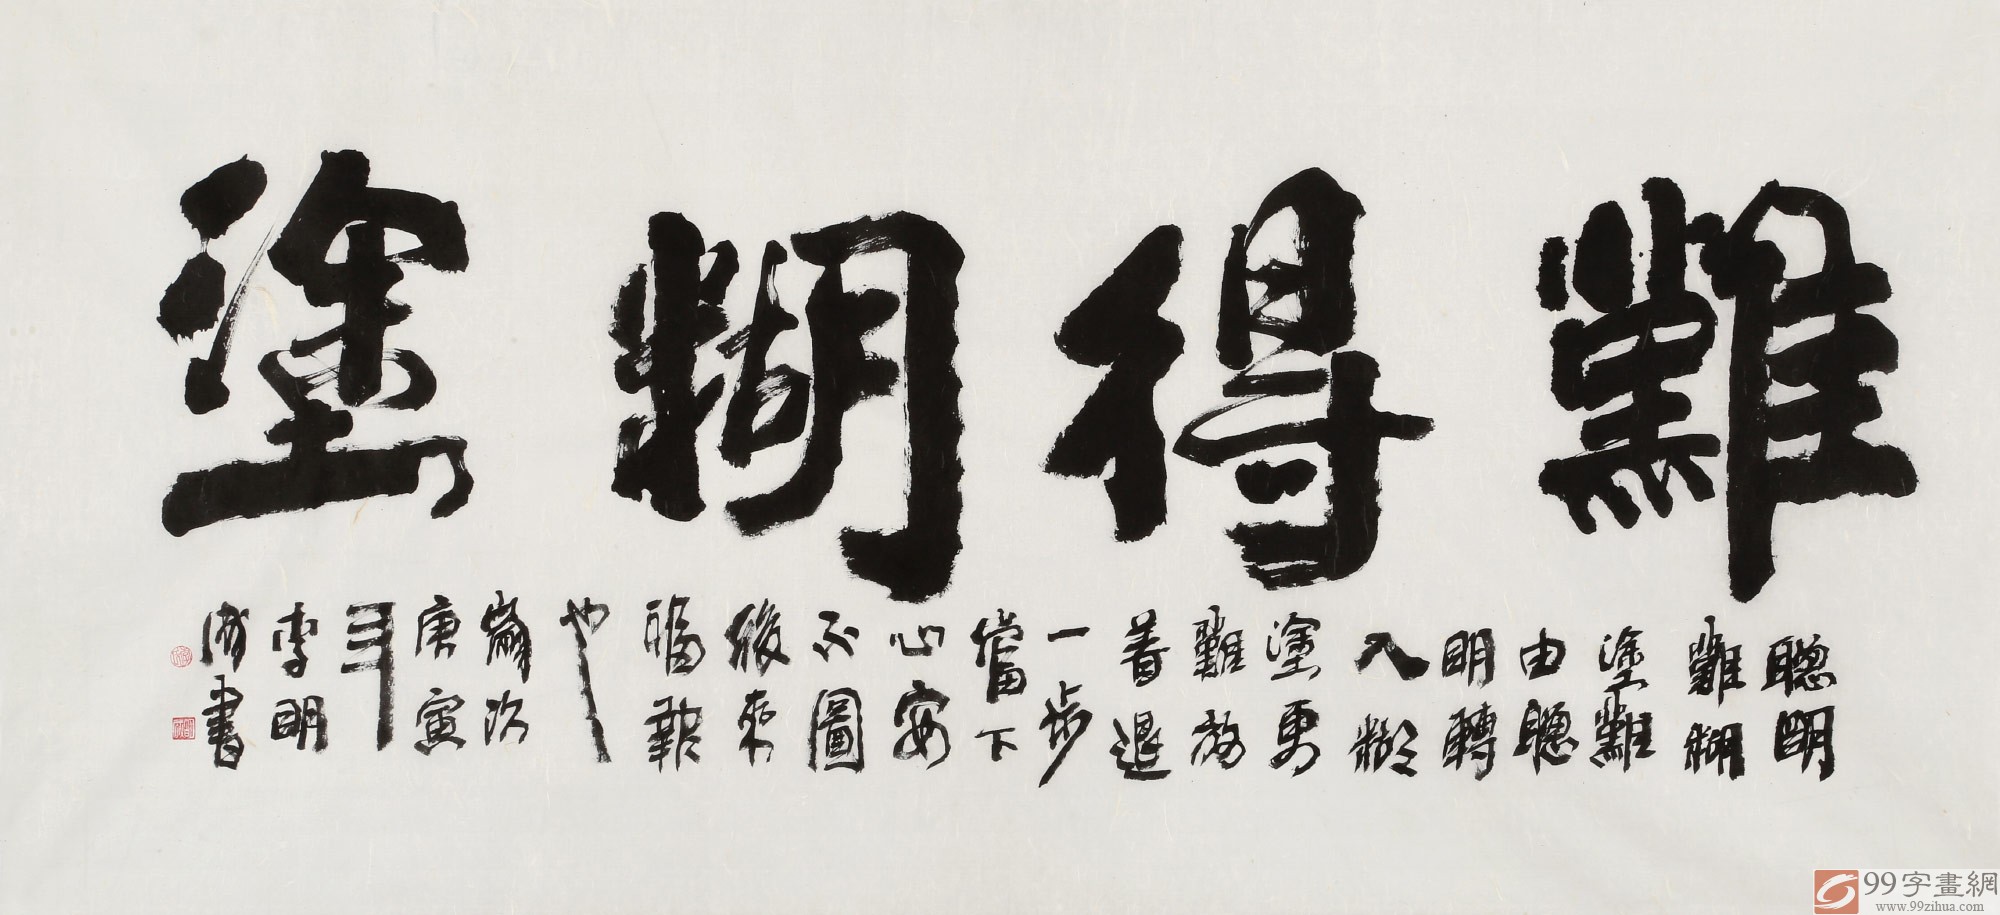 難得糊塗
聰明
難糊
塗難
由聰
明轉
入糊
塗更
難放
着退
一步
當下
心安
不圖
後來
福報
也
歲次
庚寅
年
李明
書
99字畫網
www.99zihua.com